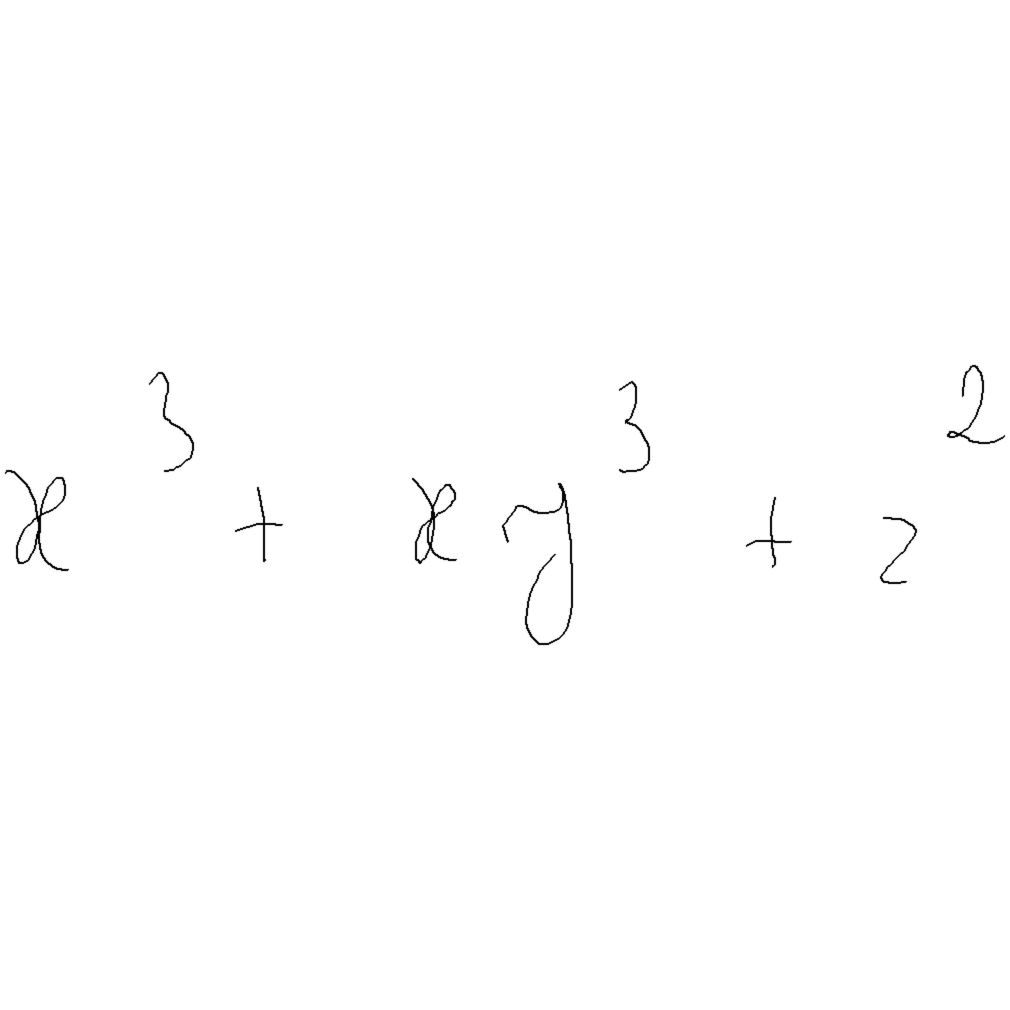 x³ + xy³ + z²